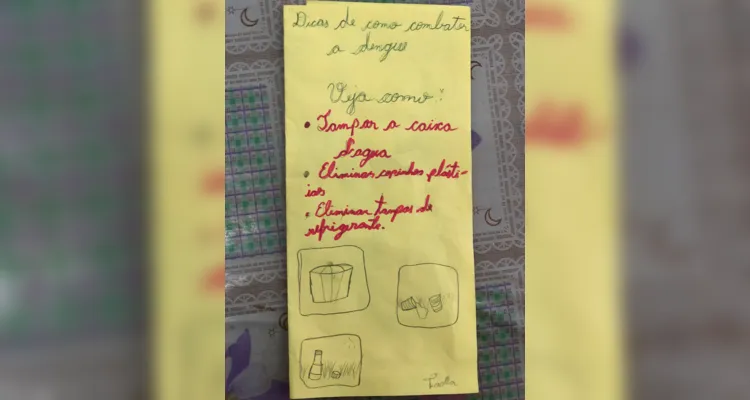 Dicas de como combater
a dengue
Veja como:
• Tampar a caixa
d'agua
• Eliminar copinhos plásti-
cos
• Eliminar tampas de
refrigerante.